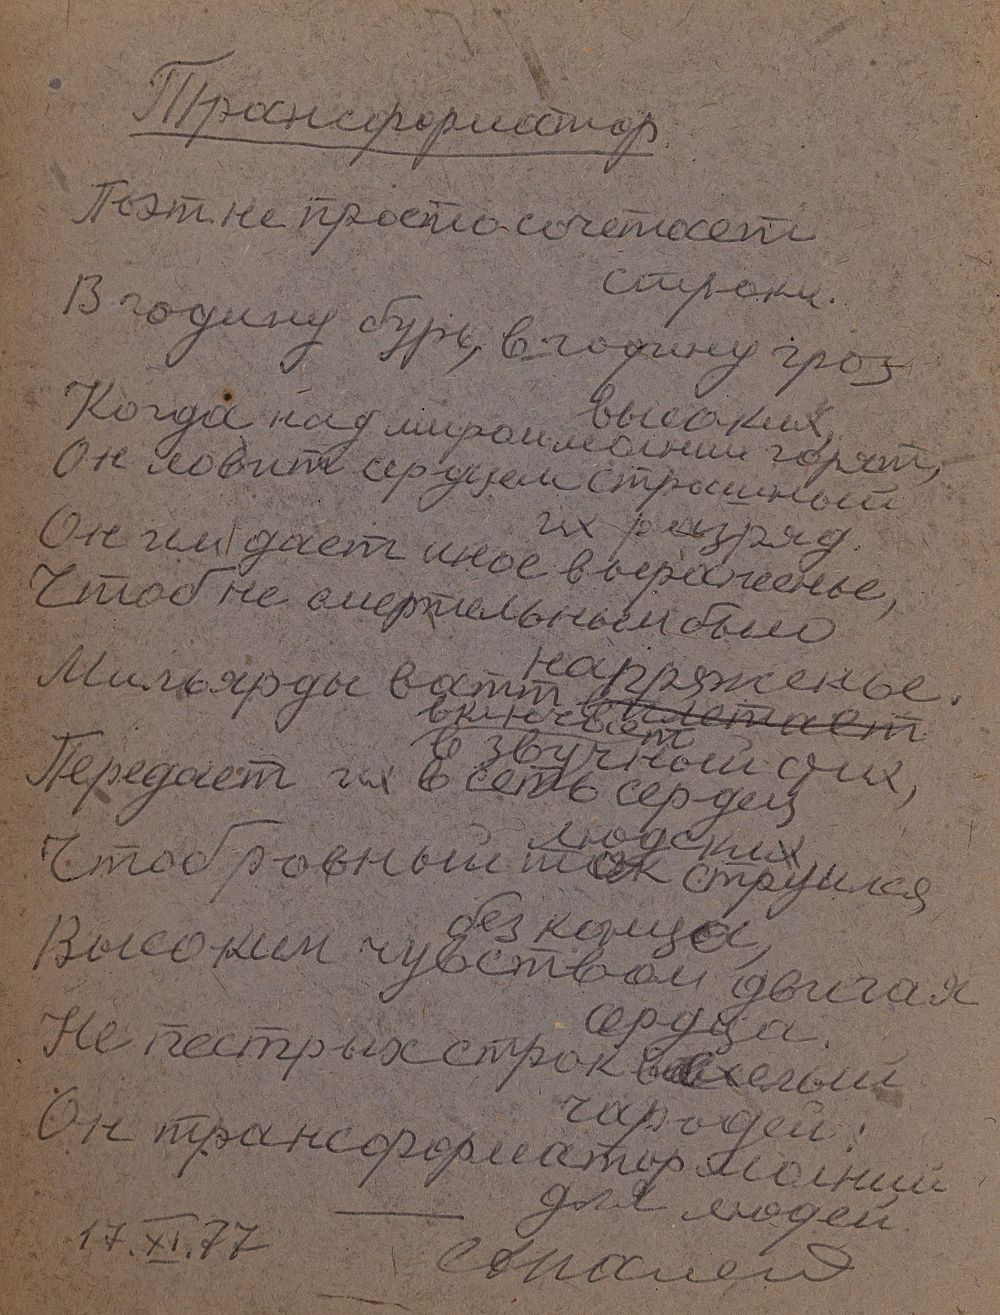 Трансформатор
Поэт не просто сочетает
строки.
В годину бурь, в годину гроз
высоких,
Когда над миром молнии горят,
Он ловит сердцем страшный
их разряд.
Он им дает иное выраженье,
Чтоб не смертельным было
напряженье.
Мильярды ватт вплетает
включает
в звучный стих,
Передает их в сеть сердец
людских,
Чтоб ровный ток струился
без конца,
Высоким чувством двигая
сердца.
Не пестрых строк веселый
чародей:
Он трансформатор молний
для людей.
17.XI.77